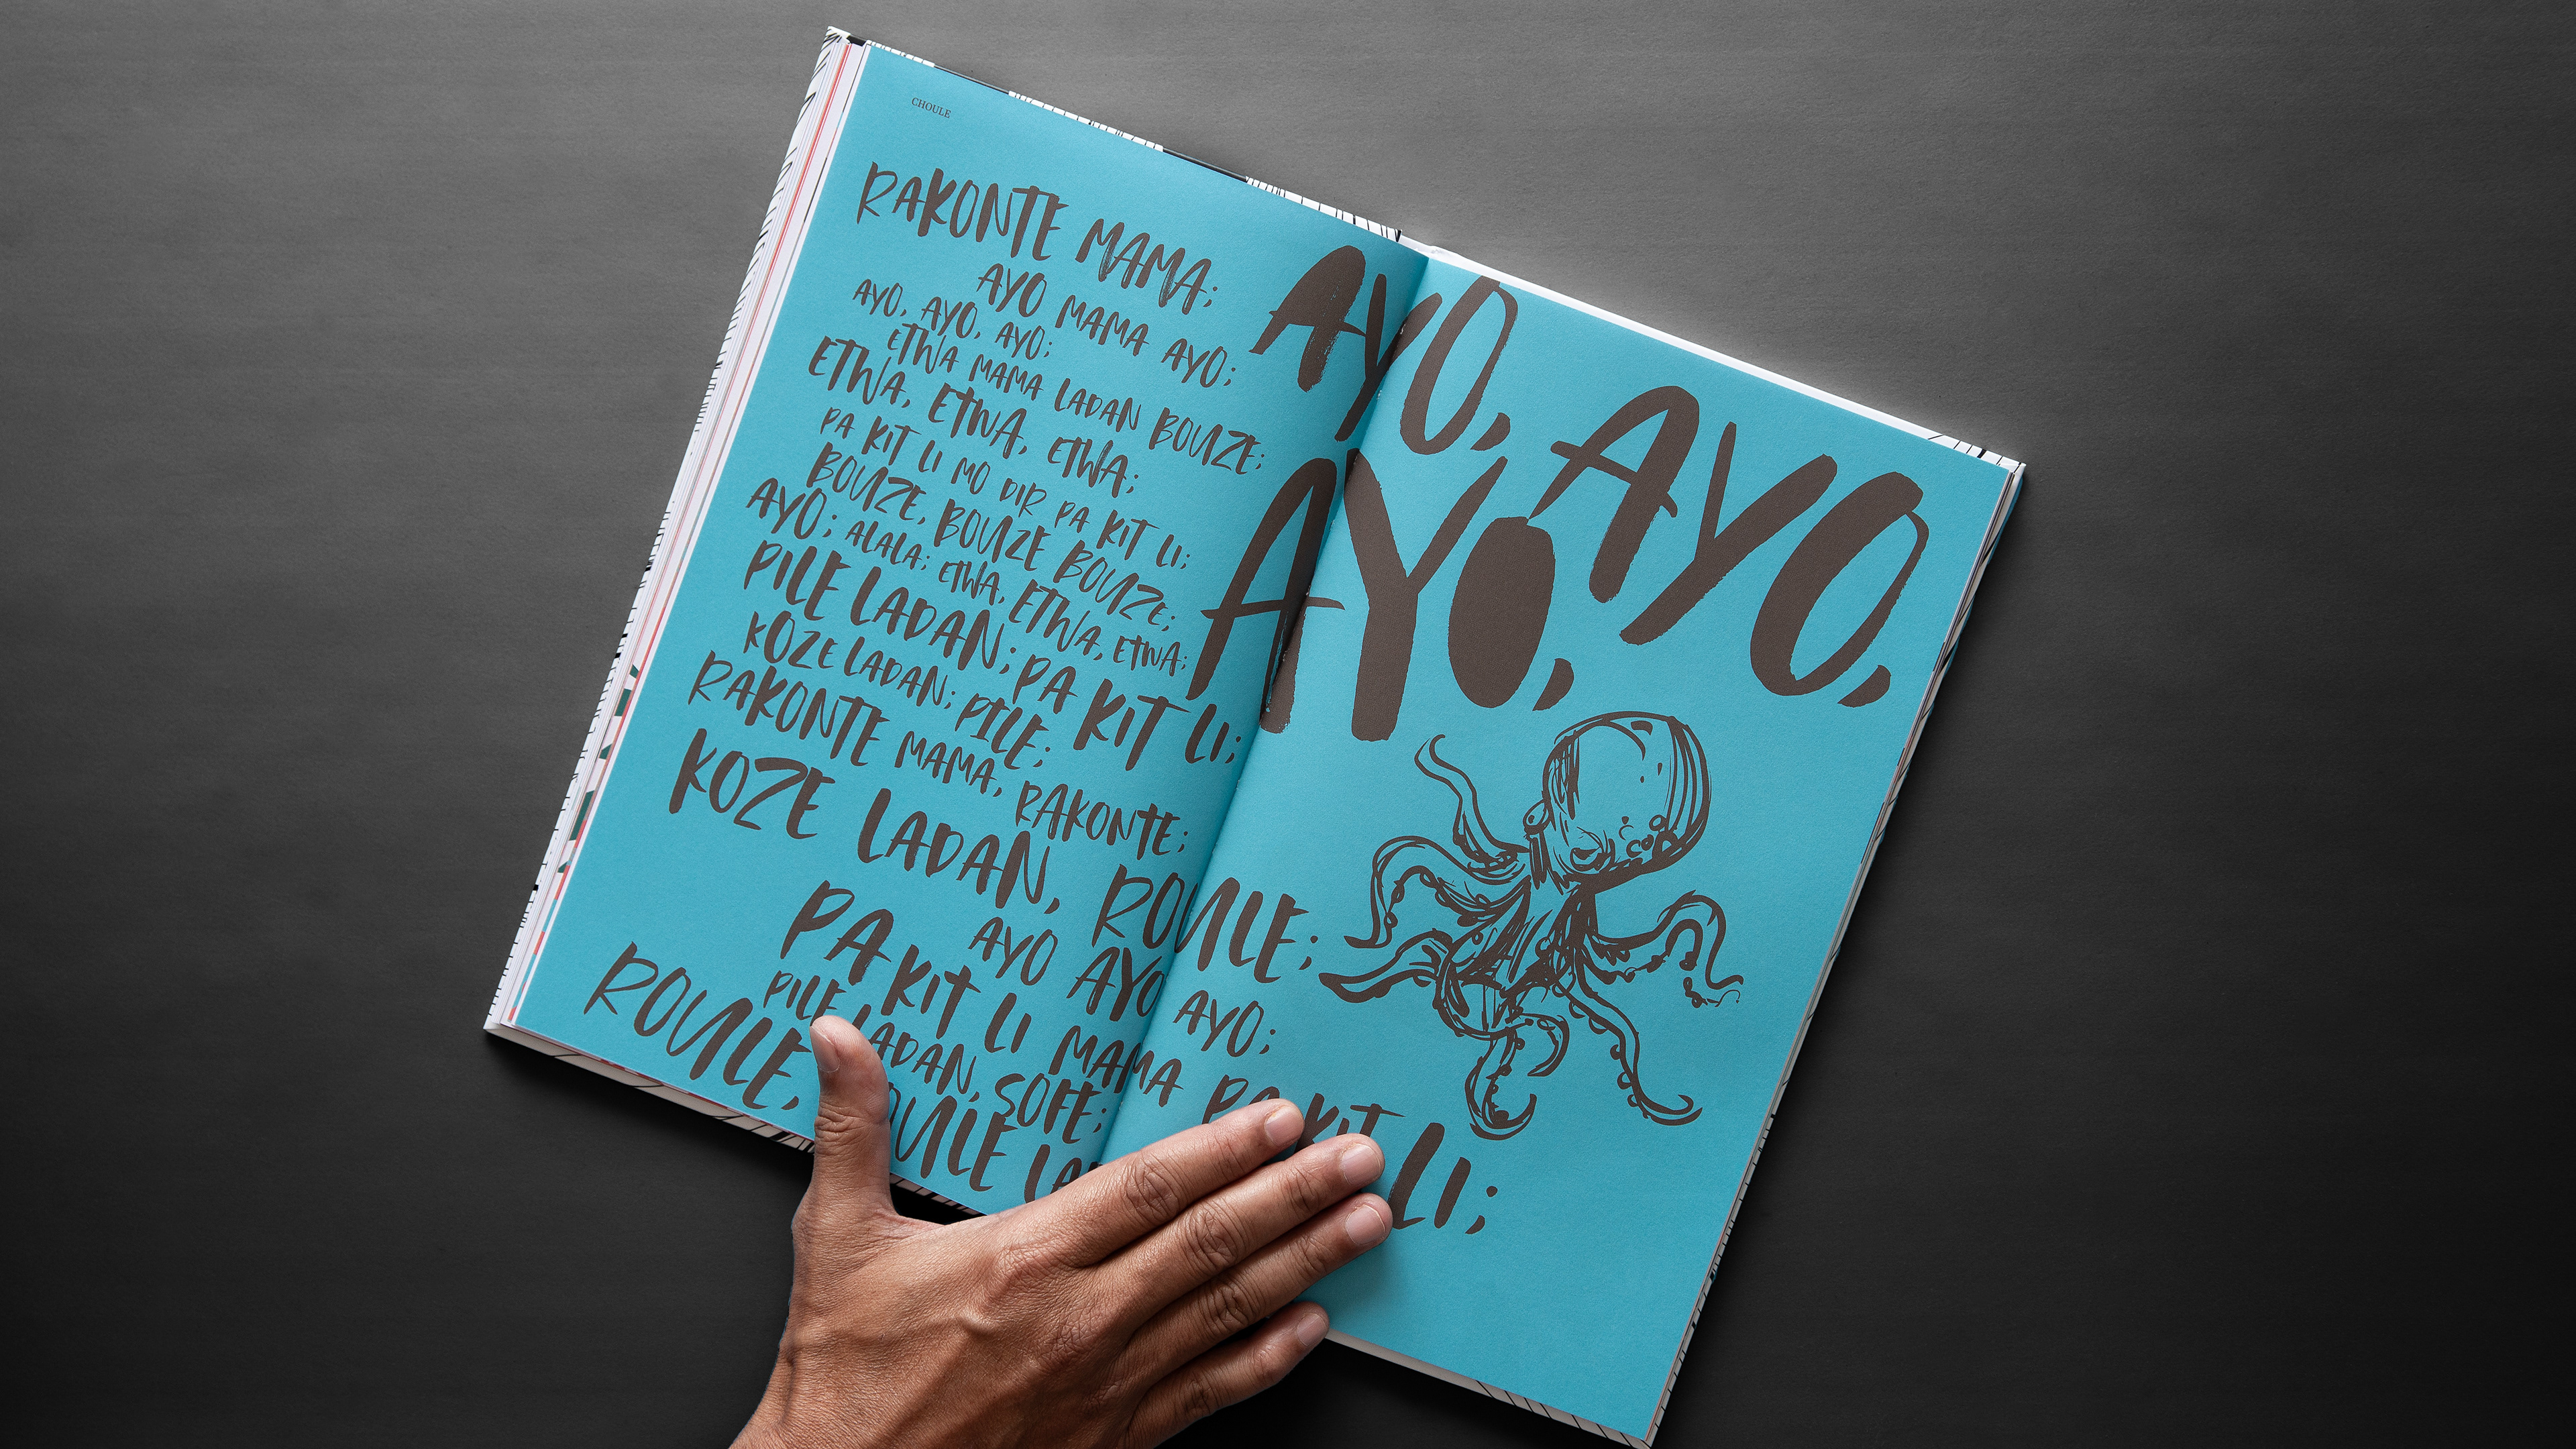 CHOULE
RAKONTE MAMA;
AYO MAMA AYO;
AYO, AYO, AYO;
ETWA MAMA LADAN BOUZE;
ETWA, ETWA, ETWA;
PA KIT LI MO DIR PA KIT LI;
BOUZE, BOUZE BOUZE;
AYO; ALALA; ETWA, ETWA, ETWA;
PILE LADAN; PA KIT LI;
KOZE LADAN; PILE;
RAKONTE MAMA, RAKONTE;
KOZE LADAN, ROULE;
AYO AYO AYO;
PA KIT LI MAMA PA KIT LI;
PILE LADAN, SOFE;
ROULE, ROULE
AYO, AYO,
AYO,